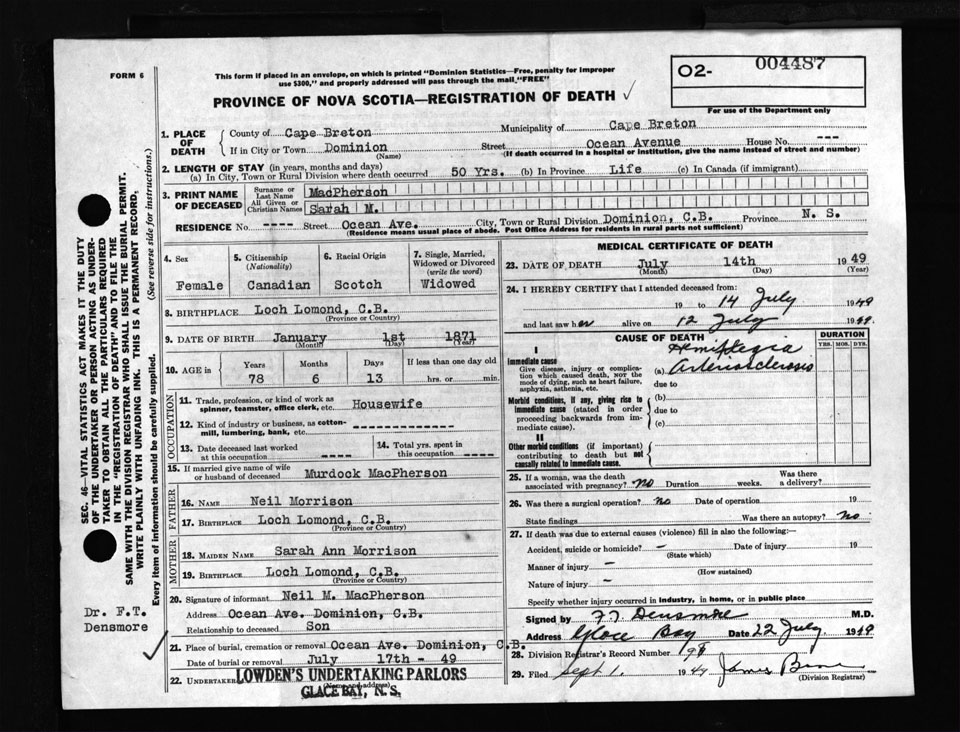 FORM 6
This form if placed in an envelope, on which is printed "Dominion Statistics—Free, penalty for improper
use $300," and properly addressed will pass through the mail "FREE"
O2- 004487
For use of the Department only
PROVINCE OF NOVA SCOTIA—REGISTRATION OF DEATH ✓
1. PLACE OF DEATH
County of Cape Breton Municipality of Cape Breton
If in City or Town Dominion Street Ocean Avenue House No. ---
(Name) (If death occurred in a hospital or institution, give the name instead of street and number)
2. LENGTH OF STAY (in years, months and days)
(a) In City, Town or Rural Division where death occurred 50 Yrs. (b) In Province Life (c) In Canada (if immigrant)
3. PRINT NAME OF DECEASED
Surname or Last Name MacPherson
All Given or Christian Names Sarah M.
RESIDENCE No. ---- Street Ocean Ave. City, Town or Rural Division Dominion, C.B. Province N. S.
(Residence means usual place of abode. Post Office Address for residents in rural parts not sufficient)
4. Sex
Female
5. Citizenship
(Nationality)
Canadian
6. Racial Origin
Scotch
7. Single, Married,
Widowed or Divorced
(write the word)
Widowed
8. BIRTHPLACE Loch Lomond, C.B.
(Province or Country)
9. DATE OF BIRTH January 1st 1871
(Month) (Day) (Year)
10. AGE in
Years Months Days If less than one day old
78 6 13 hrs. or min.
OCCUPATION
11. Trade, profession, or kind of work as
spinner, teamster, office clerk, etc. Housewife
12. Kind of industry or business, as cotton-
mill, lumbering, bank, etc.
13. Date deceased last worked
at this occupation ----
14. Total yrs. spent in
this occupation ----
15. If married give name of wife
or husband of deceased Murdock MacPherson
FATHER
16. NAME Neil Morrison
17. BIRTHPLACE Loch Lomond, C.B.
(Province or Country)
MOTHER
18. MAIDEN NAME Sarah Ann Morrison
19. BIRTHPLACE Loch Lomond, C.B.
(Province or Country)
20. Signature of informant Neil M. MacPherson
Address Ocean Ave. Dominion, C.B.
Relationship to deceased Son
21. Place of burial, cremation or removal Ocean Ave. Dominion, C.B.
Date of burial or removal July 17th - 49
22. UNDERTAKER LOWDEN'S UNDERTAKING PARLORS
(Name and address)
GLACE BAY, N. S.
MEDICAL CERTIFICATE OF DEATH
23. DATE OF DEATH July 14th 1949
(Month) (Day) (Year)
24. I HEREBY CERTIFY that I attended deceased from:
19 to 14 July 1949
and last saw her alive on 12 July 1949.
CAUSE OF DEATH
DURATION
YRS. MOS. DYS.
I
Immediate cause
Give disease, injury or complica-
tion which caused death, not the
mode of dying, such as heart failure,
asphyxia, asthenia, etc.
Hemiplegia
(a) Arteriosclerosis
due to
Morbid conditions, if any, giving rise to
immediate cause (stated in order
proceeding backwards from im-
mediate cause).
(b)
due to
(c)
II
Other morbid conditions (if important)
contributing to death but not
causally related to immediate cause.
25. If a woman, was the death
associated with pregnancy? no Duration weeks. Was there
a delivery?
26. Was there a surgical operation? no Date of operation 19
State findings Was there an autopsy? no
27. If death was due to external causes (violence) fill in also the following:—
Accident, suicide or homicide? — Date of injury 19
(State which)
Manner of injury —
(How sustained)
Nature of injury —
Specify whether injury occurred in industry, in home, or in public place
Signed by F T Densmore M.D.
Address Glace Bay Date 22 July 1949
28. Division Registrar's Record Number
29. Filed Sept 1. 1949 James
(Division Registrar)
SEC. 46—VITAL STATISTICS ACT MAKES IT THE DUTY
OF THE UNDERTAKER OR PERSON ACTING AS UNDER-
TAKER TO OBTAIN ALL THE PARTICULARS REQUIRED
IN THE "REGISTRATION OF DEATH" AND TO FILE THE
SAME WITH THE DIVISION REGISTRAR WHO SHALL ISSUE THE BURIAL PERMIT.
WRITE PLAINLY WITH UNFADING INK. THIS IS A PERMANENT RECORD,
Every item of information should be carefully supplied. (See reverse side for instructions.)
Dr. F.T.
Densmore
✓